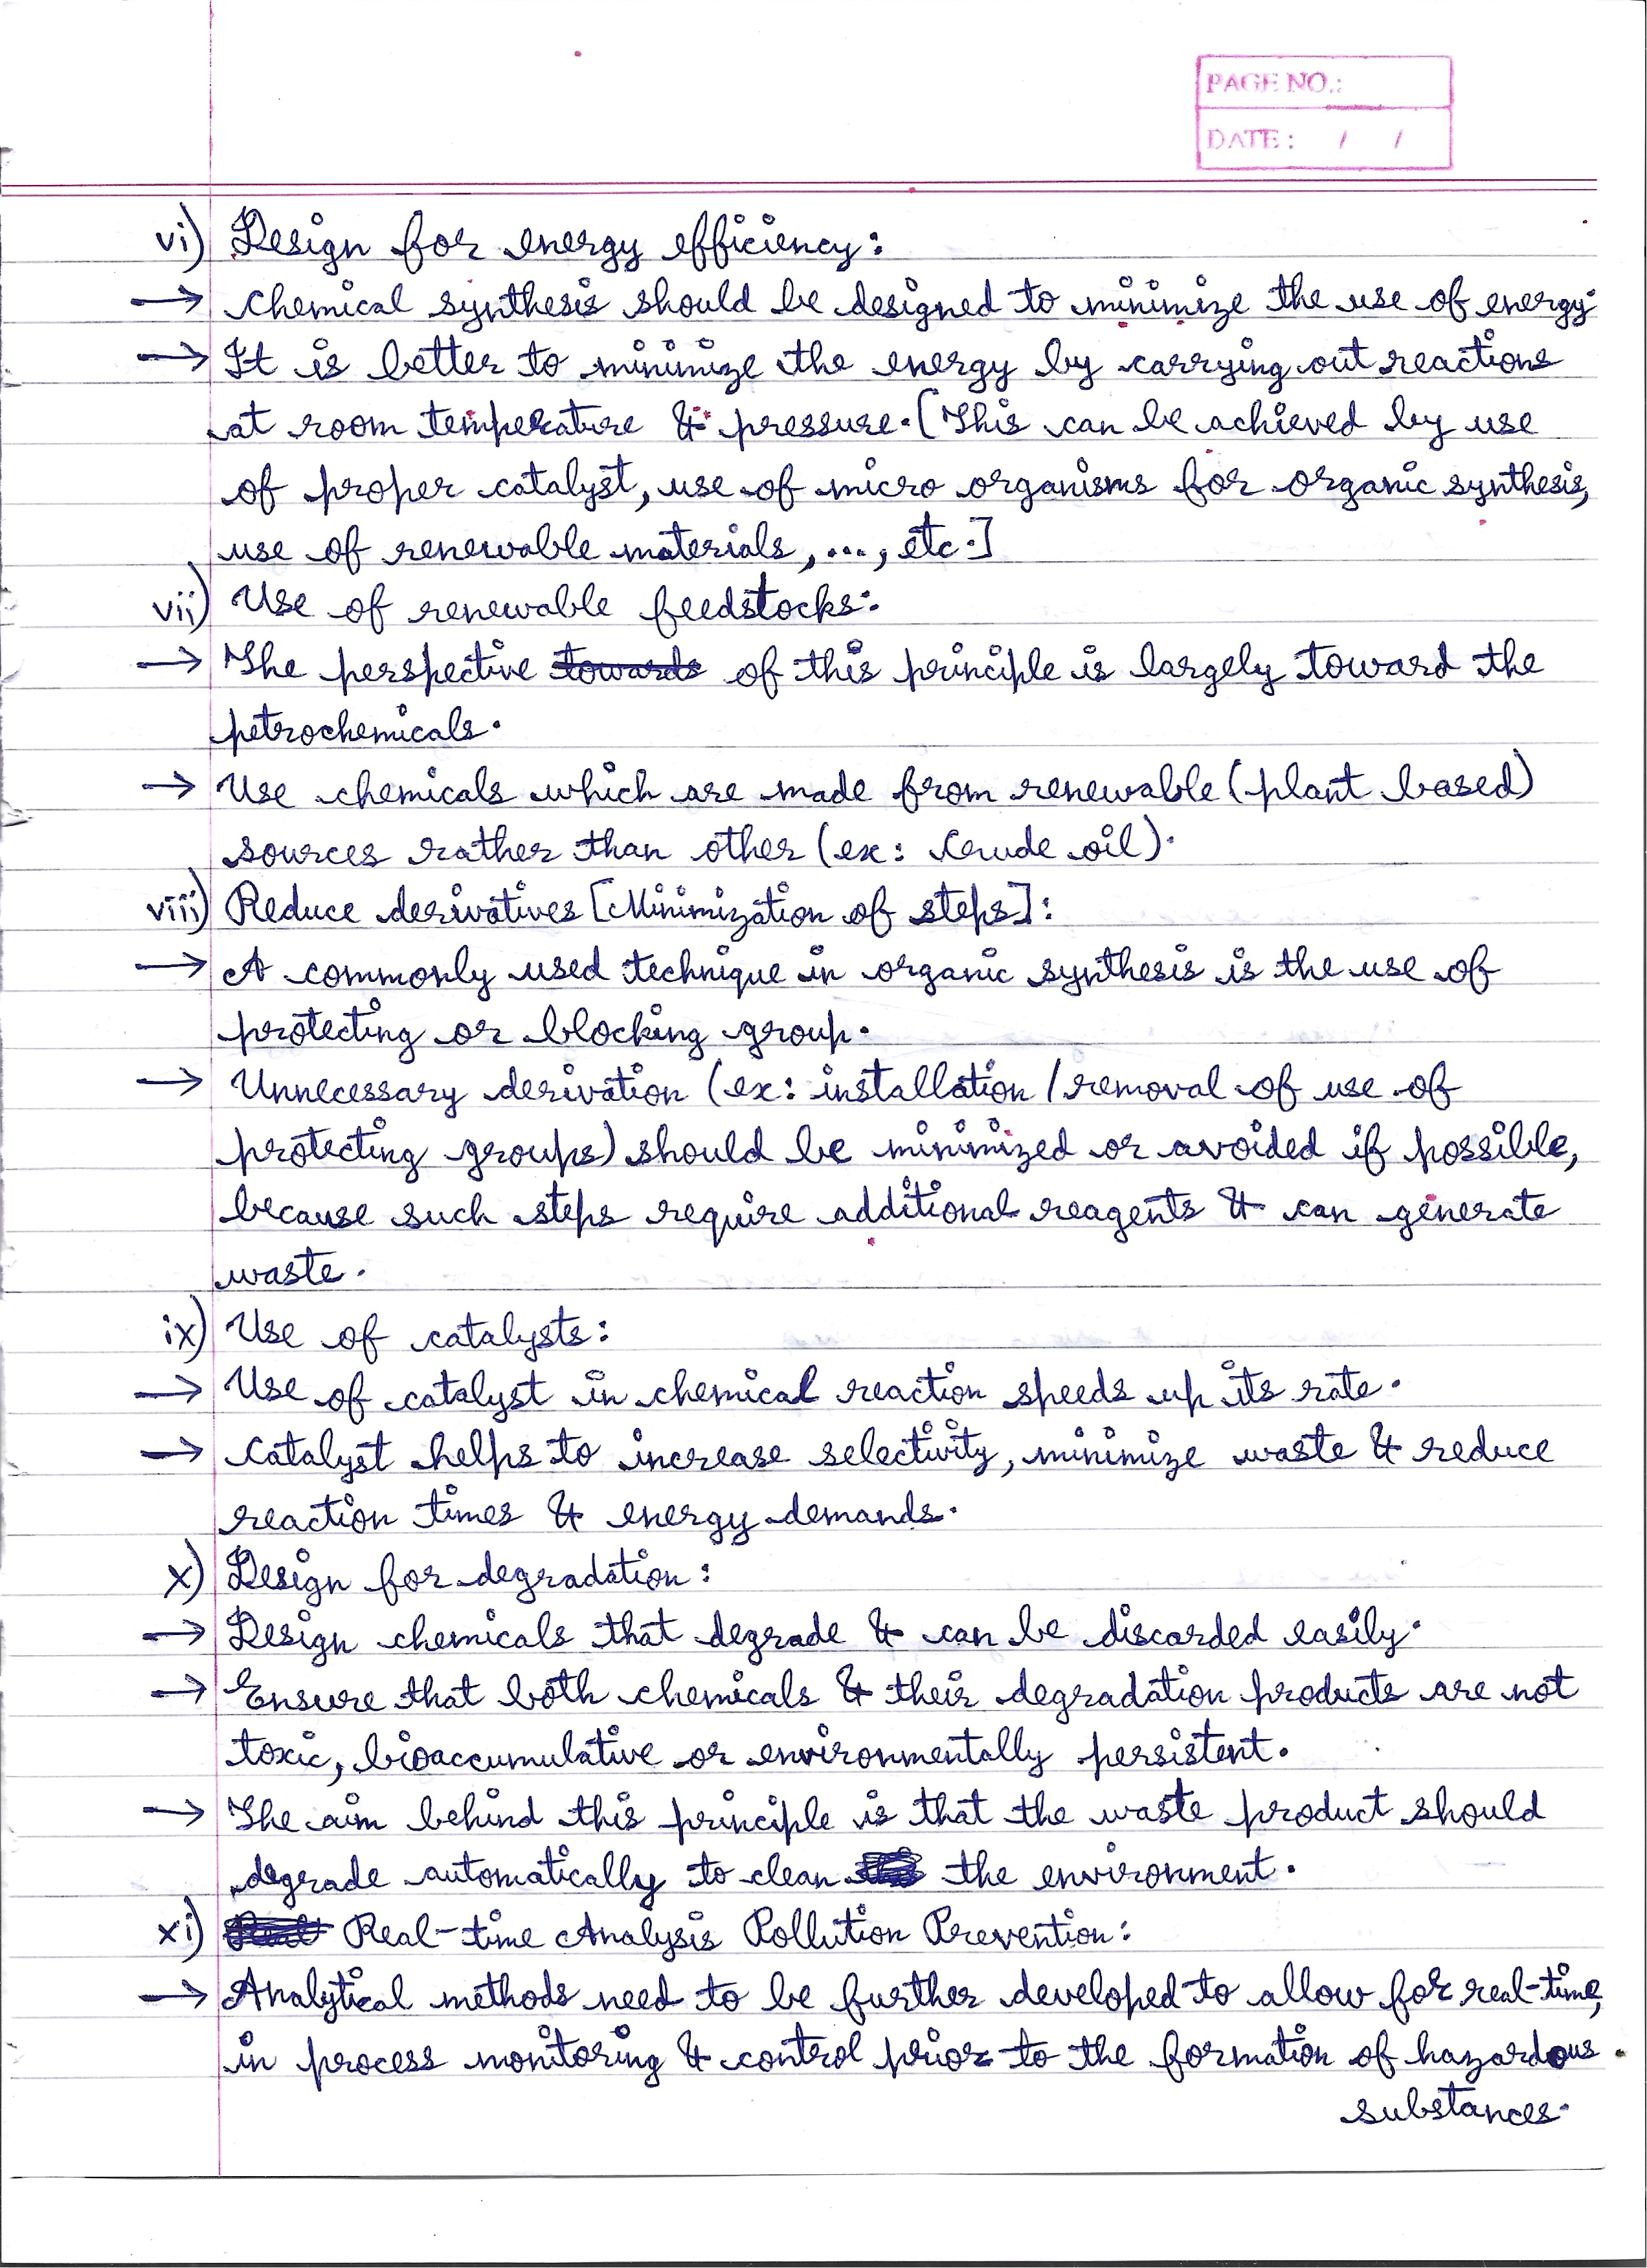 PAGE NO.:
DATE : / /
vi) Design for energy efficiency:
→ Chemical synthesis should be designed to minimize the use of energy.
→ It is better to minimize the energy by carrying out reactions
at room temperature & pressure. [This can be achieved by use
of proper catalyst, use of micro organisms for organic synthesis,
use of renewable materials, ..., etc.]
vii) Use of renewable feedstocks:
→ The perspective towards of this principle is largely toward the
petrochemicals.
→ Use chemicals which are made from renewable (plant based)
sources rather than other (ex: Crude oil).
viii) Reduce derivatives [Minimization of steps]:
→ A commonly used technique in organic synthesis is the use of
protecting or blocking group.
→ Unnecessary derivation (ex: installation / removal of use of
protecting groups) should be minimized or avoided if possible,
because such steps require additional reagents & can generate
waste.
ix) Use of catalysts:
→ Use of catalyst in chemical reaction speeds up its rate.
→ Catalyst helps to increase selectivity, minimize waste & reduce
reaction times & energy demands.
x) Design for degradation:
→ Design chemicals that degrade & can be discarded easily.
→ Ensure that both chemicals & their degradation products are not
toxic, bioaccumulative or environmentally persistent.
→ The aim behind this principle is that the waste product should
degrade automatically to clean the environment.
xi) Real-time Analysis Pollution Prevention:
→ Analytical methods need to be further developed to allow for real-time,
in process monitoring & control prior to the formation of hazardous
substances.